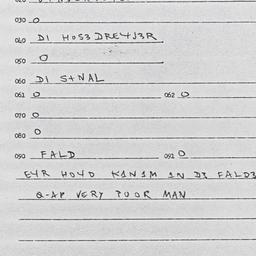 030 O
040 DI HOS3 DRE4J3R
050 O
060 DI S+NAL
061 O 062 O
070 O
080 O
090 FALD 092 O
E4R HO4D K1N1M 1N DI FALD3
Q-AP VERY POOR MAN